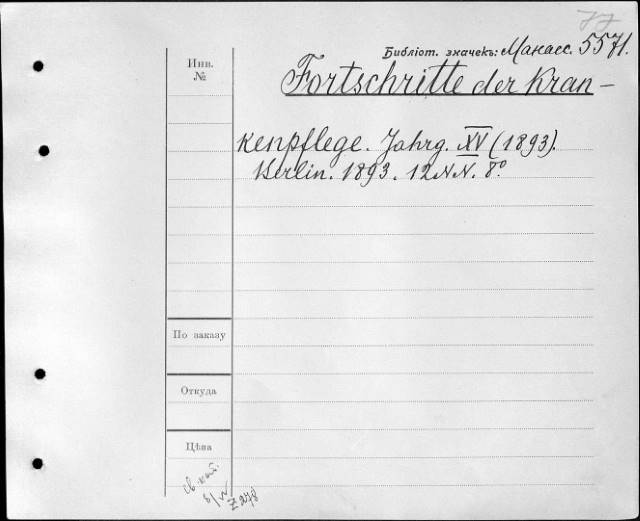 Библіот. значекъ: Манасс. 5571.
Инв.
№
Fortschritte der Kran-
kenpflege. Jahrg. XV (1893).
Berlin. 1893. 12 NN. 8º
По заказу
Откуда
Цѣна
св. кат.
Z 278